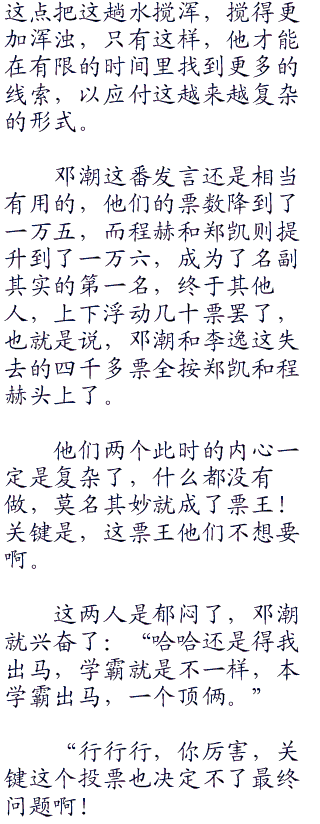 这点把这趟水搅浑，搅得更
加浑浊，只有这样，他才能
在有限的时间里找到更多的
线索，以应付这越来越复杂
的形式。
邓潮这番发言还是相当
有用的，他们的票数降到了
一万五，而程赫和郑凯则提
升到了一万六，成为了名副
其实的第一名，终于其他
人，上下浮动几十票罢了，
也就是说，邓潮和李逸这失
去的四千多票全按郑凯和程
赫头上了。
他们两个此时的内心一
定是复杂了，什么都没有
做，莫名其妙就成了票王！
关键是，这票王他们不想要
啊。
这两人是郁闷了，邓潮
就兴奋了：“哈哈还是得我
出马，学霸就是不一样，本
学霸出马，一个顶俩。”
“行行行，你厉害，关
键这个投票也决定不了最终
问题啊！